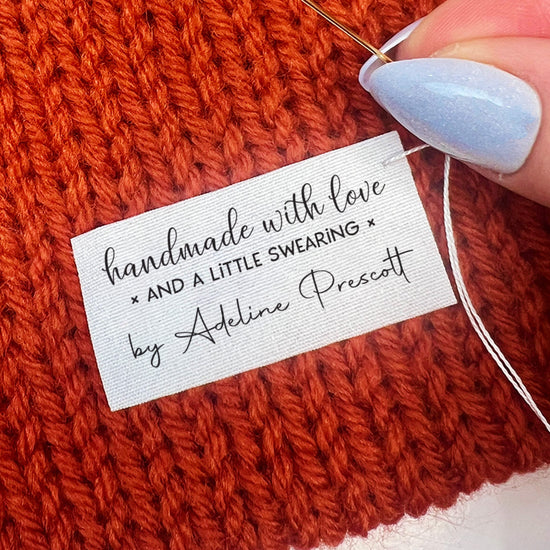 handmade with love
× AND A LiTTLE SWEARiNG ×
by Adeline Prescott